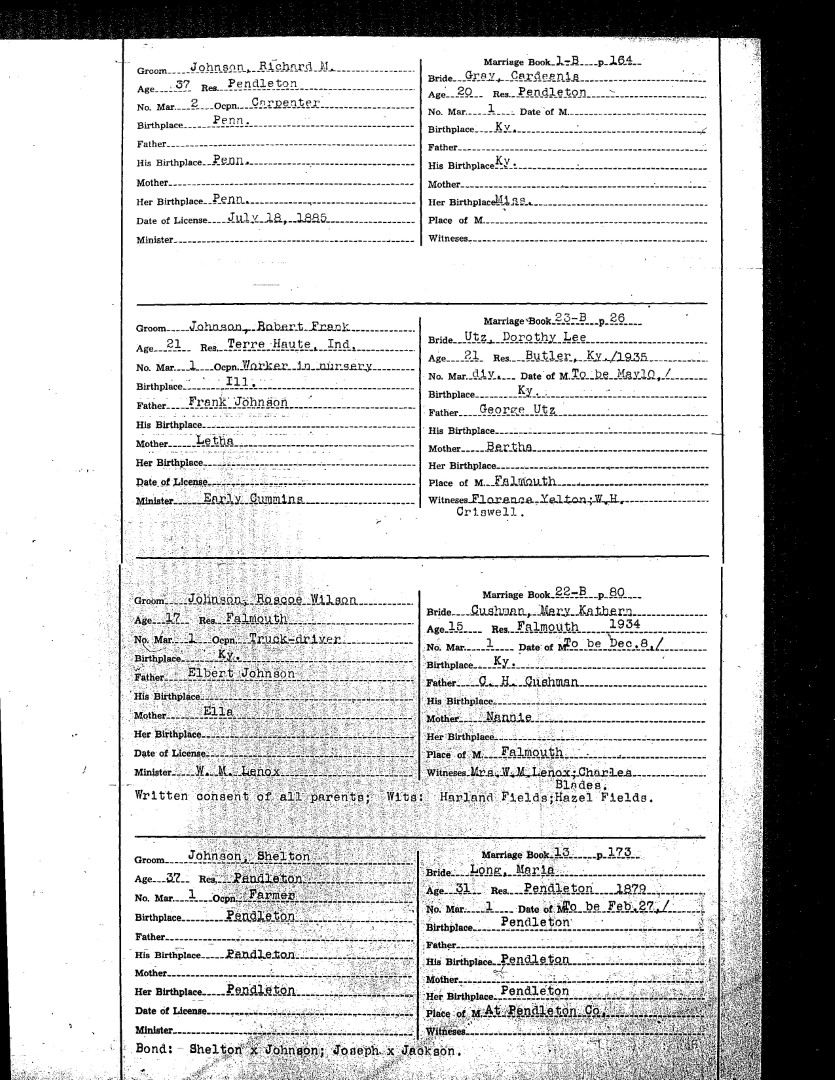 Groom Johnson, Richard M.
Age 37 Res. Pendleton
No. Mar. 2 Ocpn. Carpenter
Birthplace Penn.
Father
His Birthplace Penn.
Mother
Her Birthplace Penn.
Date of License July 18, 1885
Minister
Marriage Book 1-B p. 164
Bride Gray, Cardeenia
Age 20 Res. Pendleton
No. Mar. 1 Date of M.
Birthplace Ky.
Father
His Birthplace Ky.
Mother
Her Birthplace Miss.
Place of M.
Witneses
Groom Johnson, Robert Frank
Age 21 Res. Terre Haute, Ind.
No. Mar. 1 Ocpn. Worker in nursery
Birthplace Ill.
Father Frank Johnson
His Birthplace
Mother Letha
Her Birthplace
Date of License
Minister Early Cummins
Marriage Book 23-B p. 26
Bride Utz, Dorothy Lee
Age 21 Res. Butler, Ky./1935
No. Mar. div. Date of M. To be May10,/
Birthplace Ky.
Father George Utz
His Birthplace
Mother Bertha
Her Birthplace
Place of M. Falmouth
Witneses Florence Yelton;W.H.
Criswell.
Groom Johnson, Roscoe Wilson
Age 17 Res. Falmouth
No. Mar. 1 Ocpn. Truck-driver
Birthplace Ky.
Father Elbert Johnson
His Birthplace
Mother Ella
Her Birthplace
Date of License
Minister W. M. Lenox
Marriage Book 22-B p. 80
Bride Cushman, Mary Kathern
Age 15 Res. Falmouth 1934
No. Mar. 1 Date of M. To be Dec.8,/
Birthplace Ky.
Father C. H. Cushman
His Birthplace
Mother Nannie
Her Birthplace
Place of M. Falmouth
Witneses Mrs.W.M.Lenox;Charles
Blades.
Written consent of all parents; Wits: Harland Fields;Hazel Fields.
Groom Johnson, Shelton
Age 37 Res. Pendleton
No. Mar. 1 Ocpn. Farmer
Birthplace Pendleton
Father
His Birthplace Pendleton
Mother
Her Birthplace Pendleton
Date of License
Minister
Marriage Book 13 p. 173
Bride Long, Maria
Age 31 Res. Pendleton 1879
No. Mar. 1 Date of M. To be Feb.27,/
Birthplace Pendleton
Father
His Birthplace Pendleton
Mother
Her Birthplace Pendleton
Place of M. At Pendleton Co.
Witneses
Bond: Shelton x Johnson; Joseph x Jackson.